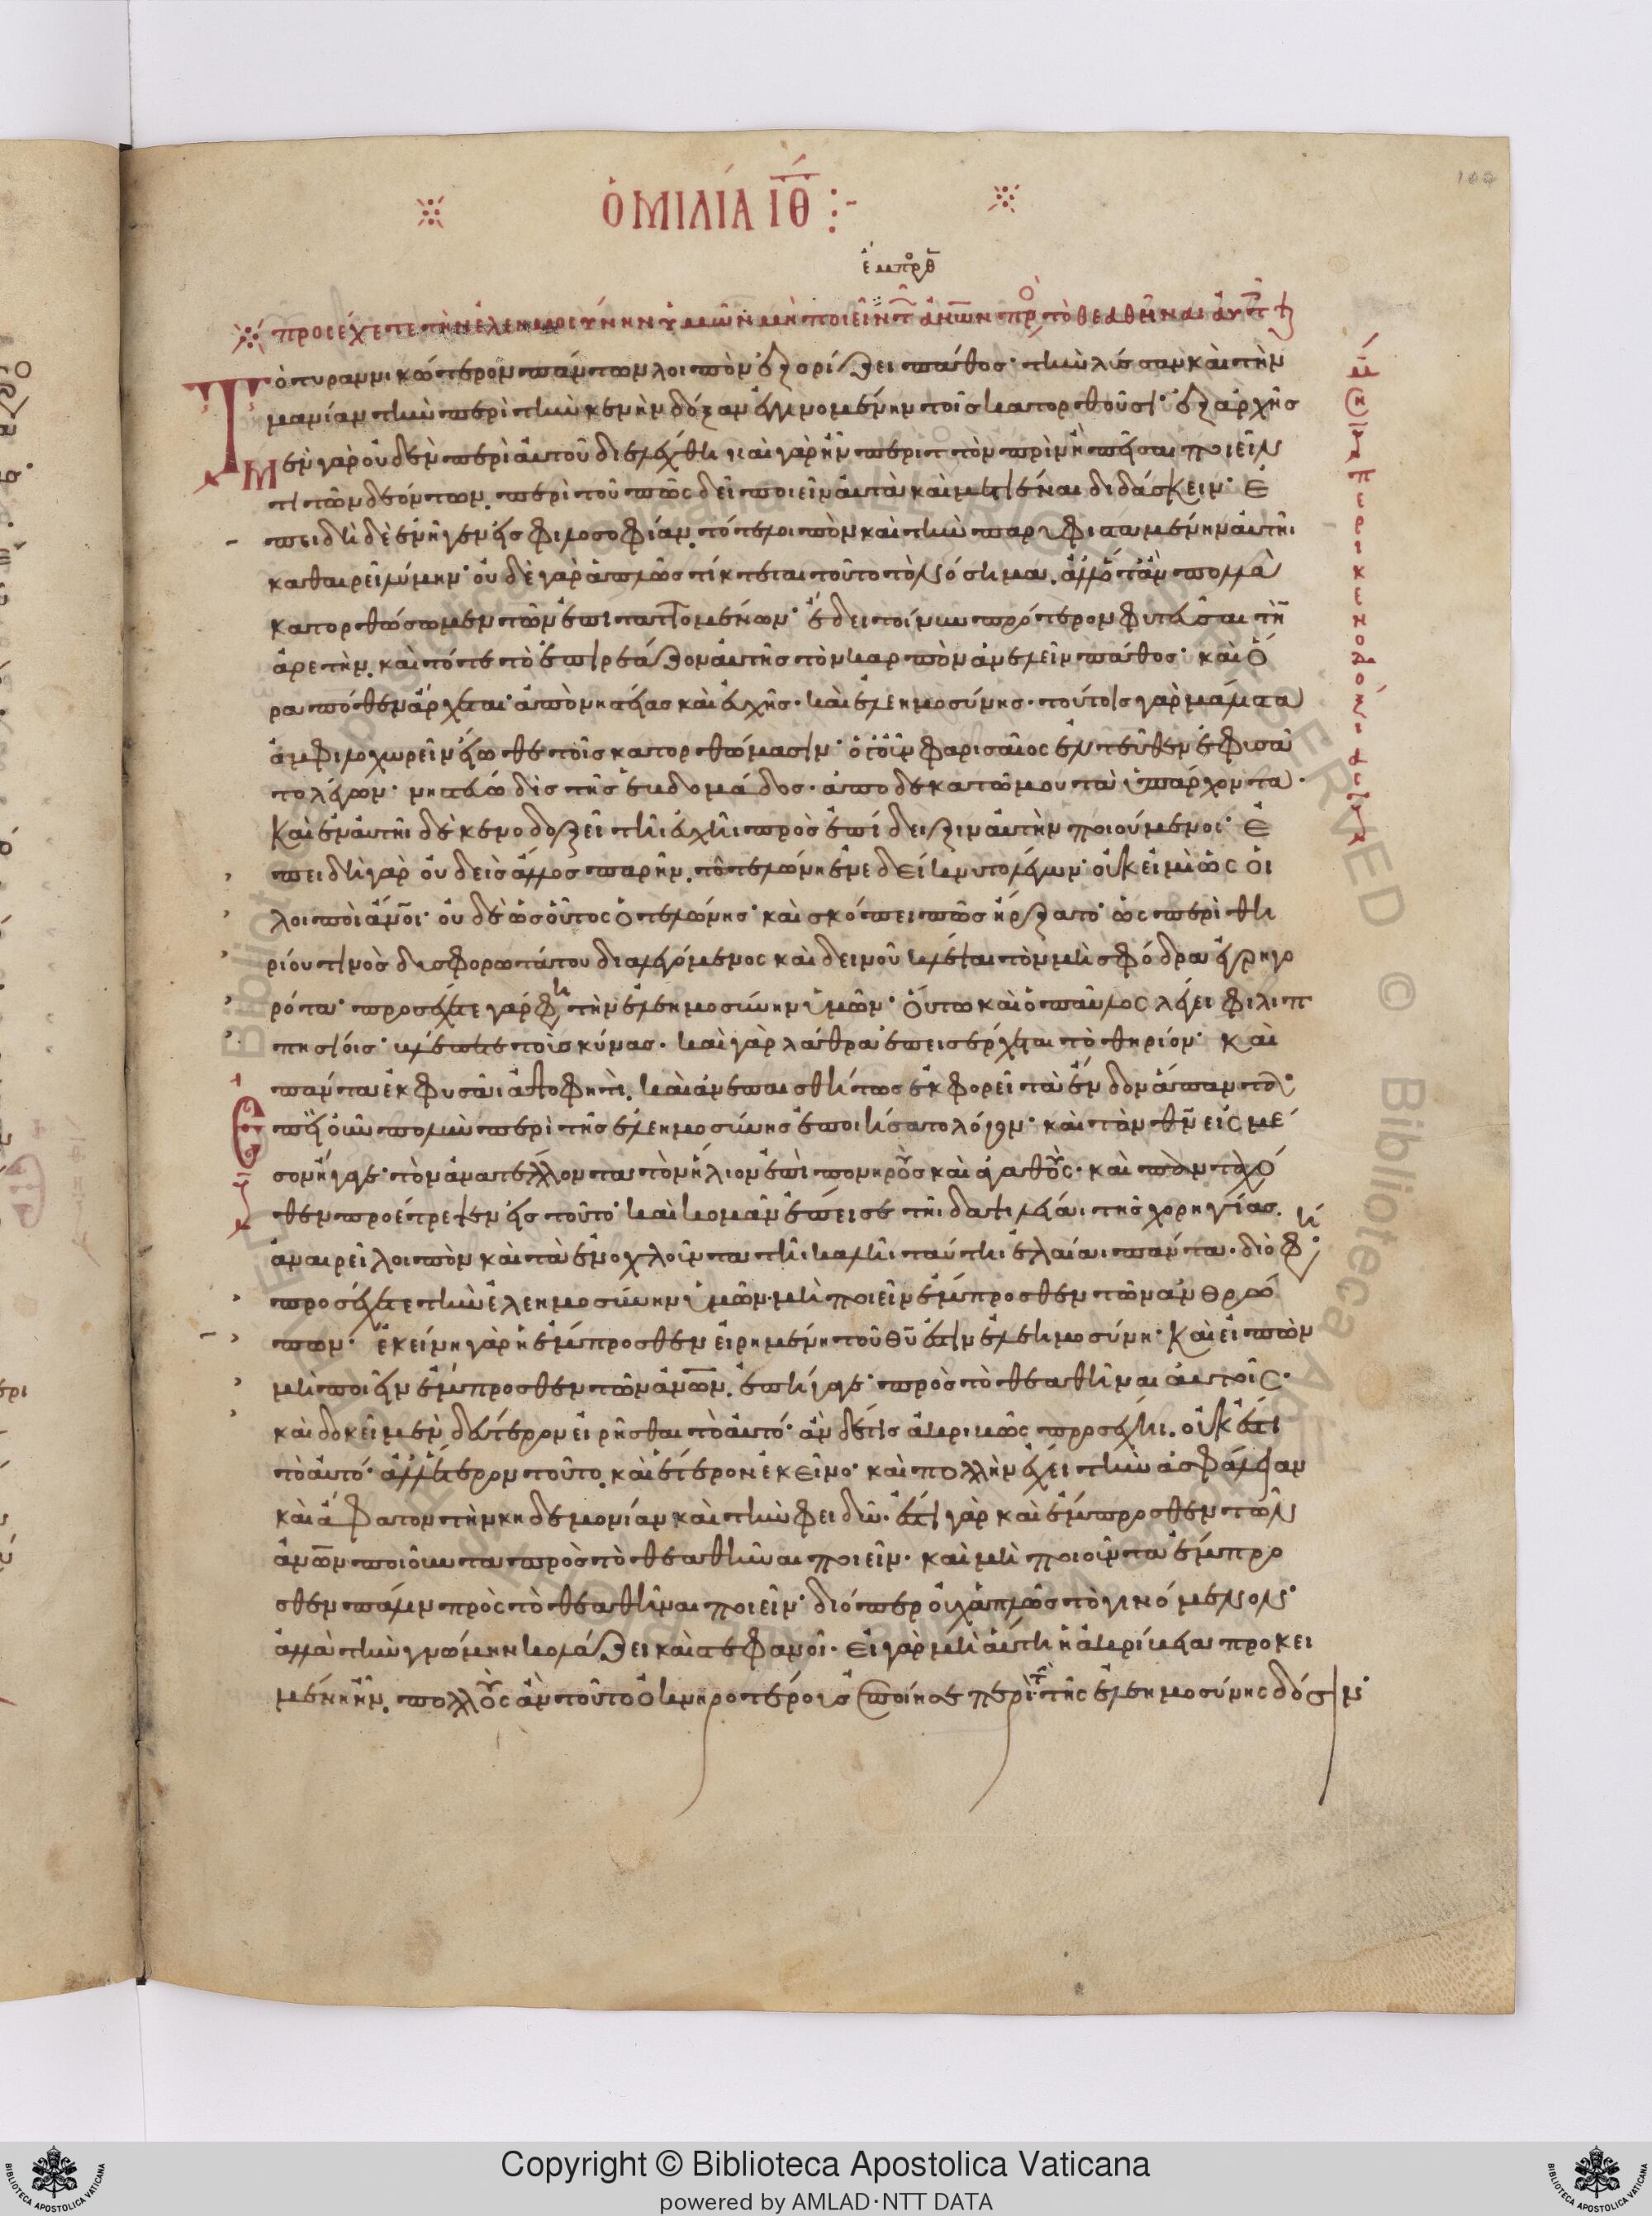 ὉΜΙΛΊΑ ΙΘ
ἐμπρθ
προσέχετε τὴν ἐλεημοσύνην ὑμῶν μὴ ποιεῖν τ ἀνων πρ τὸ θεαθῆναι αὐτ
Τὸ τυραννικώτερον πάντων λοιπὸν ἐξορίζει πάθος· τὴν λύσσαν καὶ τὴν
μανίαν τὴν περὶ τὴν κενὴν δόξαν ἐγγινομένην τοῖς κατορθοῦσι· ἐξ ἀρχῆς
μὲν γὰρ οὐδὲν περὶ αὐτοῦ διελέχθη· καὶ γὰρ ἦν περιττὸν πρὶν ἢ πεῖσαι ποιεῖν
τι τῶν δεόντων, περὶ τοῦ πῶς δεῖ ποιεῖν αὐτὰ καὶ μετιέναι διδάσκειν· ἐ
πειδὴ δὲ ἐνήγεν εἰς φιλοσοφίαν, τότε λοιπὸν καὶ τὴν παρυφισταμένην αὐτῇ
καθαιρεῖ λύμην· οὐδὲ γὰρ ἁπλῶς τίκτεται τοῦτο τὸ νόσημα, ἀλλ' ὅταν πολλὰ
κατορθώσωμεν τῶν ἐπιταττομένων· ἔδει τοίνυν πρότερον φυτεῦσαι τὴν
ἀρετὴν, καὶ τότε τὸ ἐπηρεάζον αὐτῆς τὸν καρπὸν ἀνελεῖν πάθος· καὶ ὅ
ρα πόθεν ἄρχεται· ἀπὸ νηστείας καὶ εὐχῆς· καὶ ἐλεημοσύνης· τούτοις γὰρ μάλιστα
ἐμφιλοχωρεῖν εἴωθε τοῖς κατορθώμασιν· ὁ γοῦν φαρισαῖος ἐντεῦθεν ἐφυσᾶ
το λέγων· νηστεύω δὶς τῆς ἑβδομάδος· ἀποδεκατῶ μου τὰ ὑπάρχοντα·
καὶ ἐν αὐτῇ δὲ κενοδοξεῖ τῇ εὐχῇ πρὸς ἐπίδειξιν αὐτὴν ποιούμενος· ἐ
πειδὴ γὰρ οὐδεὶς ἄλλος παρῆν, τὸν τελώνην ἐνεδείκνυτο λέγων· οὐκ εἰμὶ ὡς οἱ
λοιποὶ ἀνοι· οὐδὲ ὡς οὗτος ὁ τελώνης· καὶ σκόπει πῶς ἤρξατο· ὡς περὶ θη
ρίου τινὸς δυσφορωτάτου διαλεγόμενος καὶ δεινοῦ κλέψαι τὸν μὴ σφόδρα ἐγρηγο
ρότα· προσέχετε γάρ φη τὴν ἐλεημοσύνην ὑμῶν· οὕτω καὶ ὁ παῦλος λέγει φιλιπ
πησίοις· βλέπετε τοὺς κύνας· καὶ γὰρ λάθρα ἐπεισέρχεται τὸ θηρίον· καὶ
πάντα ἐκφυσᾶ ἀψοφητὶ, καὶ ἀνεπαισθήτως ἐκφορεῖ τὰ ἔνδον ἅπαντα·
ἐπεὶ οὖν πολὺν περὶ τῆς ἐλεημοσύνης ἐποιήσατο λόγον· καὶ τὸν θν εἰς μέ
σον ἤγαγε· τὸν ἀνατέλλοντα τὸν ἥλιον ἐπὶ πονηροὺς καὶ ἀγαθούς· καὶ πανταχό
θεν προέτρεψεν εἰς τοῦτο· καὶ κομᾶν ἔπεισε τῇ δαψιλείᾳ τῆς χορηγίας,
ἀναιρεῖ λοιπὸν καὶ τὰ ἐνοχλοῦντα τῇ καλῇ ταύτῃ ἐλαίᾳ πάντα· διό φη·
προσέχετε τὴν ἐλεημοσύνην ὑμῶν· μὴ ποιεῖν ἔμπροσθεν τῶν ἀνθρώ
πων· ἐκείνη γὰρ ἡ ἔμπροσθεν εἰρημένη τοῦ θυ ἐστὶν ἐλεημοσύνη· καὶ εἰπὼν
μὴ ποιεῖν ἔμπροσθεν τῶν ἀνων, ἐπήγαγε· πρὸς τὸ θεαθῆναι αὐτοῖς·
καὶ δοκεῖ μὲν δεύτερον εἰρῆσθαι τὸ αὐτό· ἂν δέ τις ἀκριβῶς προσέχῃ, οὐκ ἔστι
τὸ αὐτό· ἀλλ' ἕτερον τοῦτο, καὶ ἕτερον ἐκεῖνο· καὶ πολλὴν ἔχει τὴν ἀσφάλειαν
καὶ ἄφατον τὴν κηδεμονίαν καὶ τὴν φειδώ· ἔστι γὰρ καὶ ἔμπροσθεν τῶν
ἀνων ποιοῦντα πρὸς τὸ θεαθῆναι ποιεῖν· καὶ μὴ ποιοῦντα ἔμπρο
σθεν πάλιν πρὸς τὸ θεαθῆναι ποιεῖν· διόπερ οὐχ ἁπλῶς τὸ γινόμενον·
ἀλλὰ τὴν γνώμην κολάζει καὶ στεφανοῖ· εἰ γὰρ μὴ αὕτη ἡ ἀκρίβεια προκει
μένη ἦν, πολλοὺς ἂν τοῦτο ὀκνηροτέρους ἐποίησε περὶ τὴν τῆς ἐλεημοσύνης δόσιν·
περικενοδοξίας